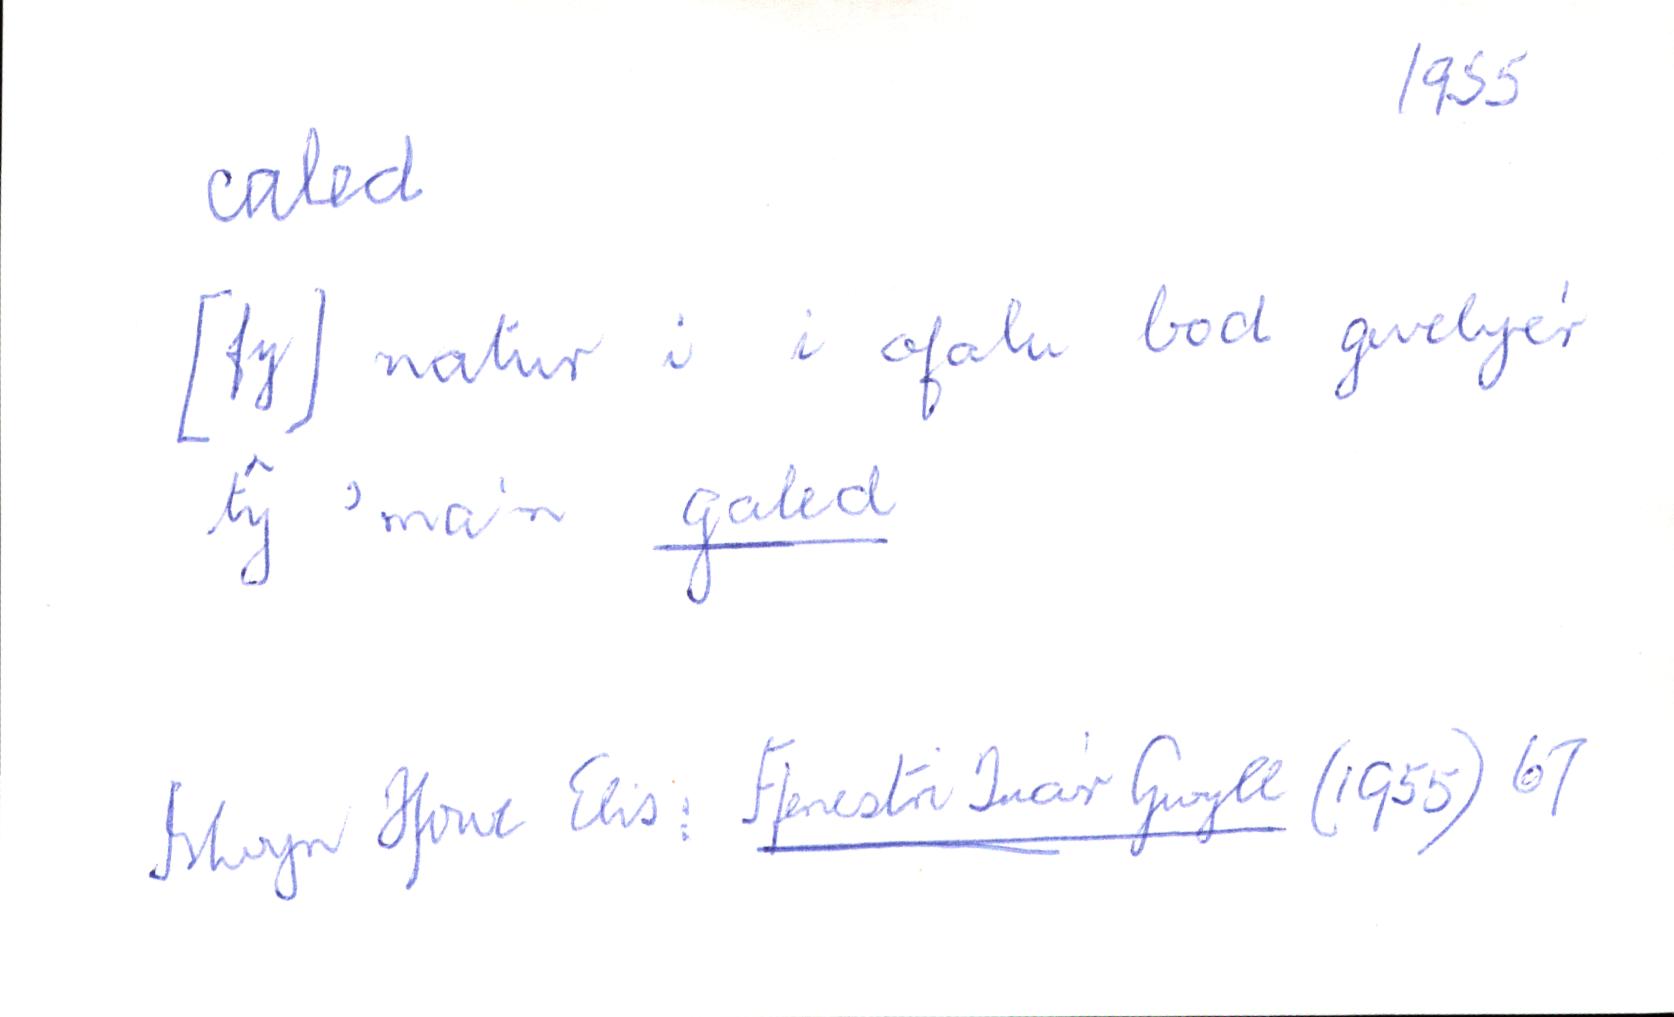 1955
caled
[fy] natur i i ofalu bod gwelye'r
tŷ 'ma'n galed
Islwyn Ffowc Elis: Ffenestri Tua'r Gwyll (1955) 67